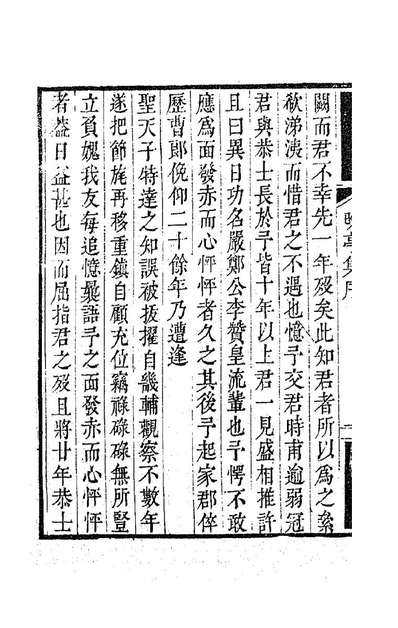 闕而君不幸先一年歿矣此知君者所以為之絫
欷涕洟而惜君之不遇也憶予交君時甫逾弱冠
君與恭士長於予皆十年以上君一見盛相推許
且曰異日功名嚴鄭公李贊皇流輩也予愕不敢
應為面發赤而心怦怦者久之其後予起家郡倅
歷曹郎俛仰二十餘年乃遭逢
聖天子特達之知誤被拔擢自畿輔觀察不數年
遂把節旄再移重鎮自顧充位竊祿碌碌無所豎
立負媿我友每追憶曩語予之面發赤而心怦怦
者葢日益甚也因而屈指君之歿且將廿年恭士
集序